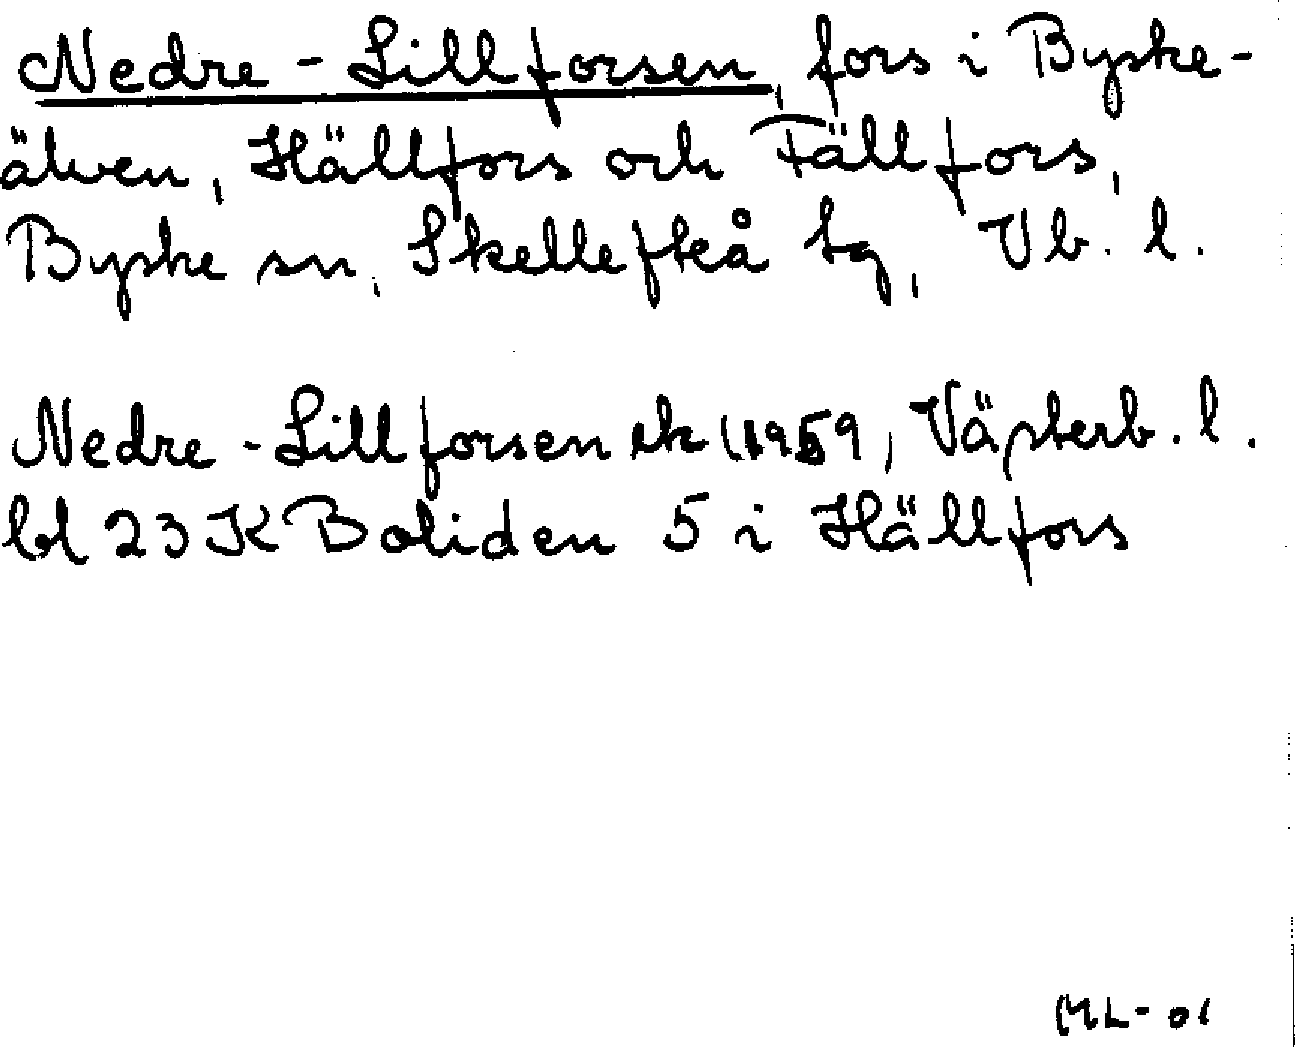 Nedre-Lillforsen, fors i Byske-
älven, Hällfors och Fällfors,
Byske sn, Skellefteå tg, Vb. l.
Nedre-Lillforsen ek (1959, Västerb. l.
bl 23K Boliden 5 i Hällfors
ML-01